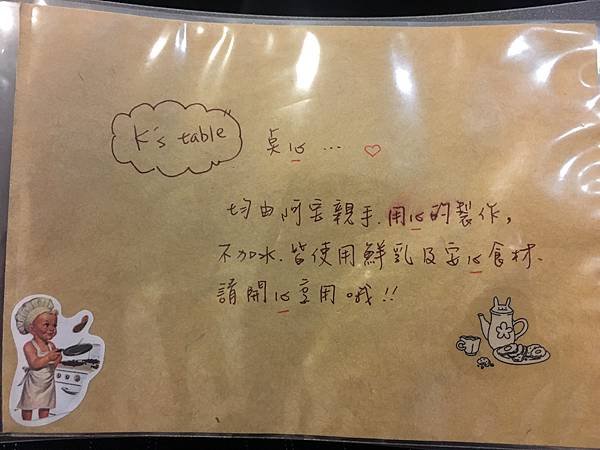 K's table
桌心… ♡
均由阿宏親手.用心的製作,
不加水.皆使用鮮乳及安心食材.
請開心享用哦!!